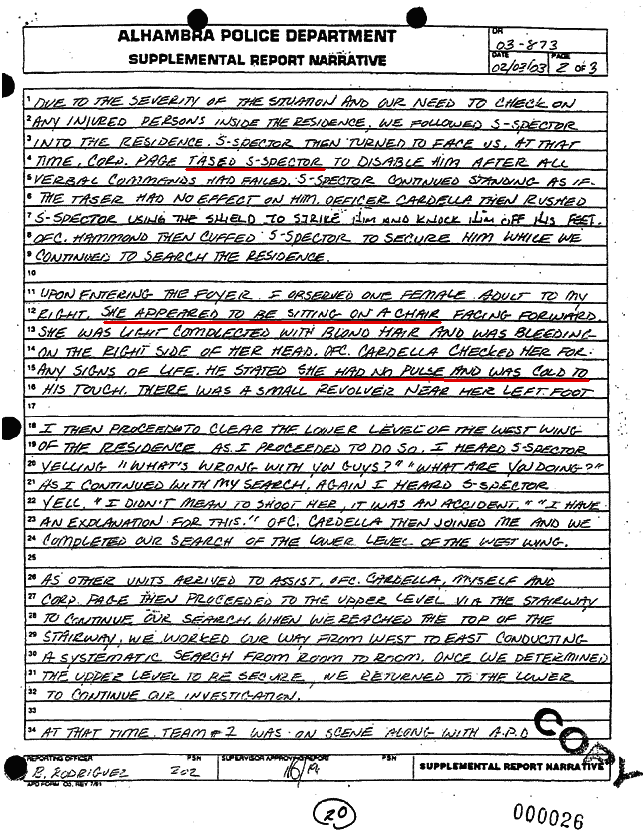 ALHAMBRA POLICE DEPARTMENT
SUPPLEMENTAL REPORT NARRATIVE
DR
03-873
DATE
02/03/03
PAGE
2 OF 3
1 DUE TO THE SEVERITY OF THE SITUATION AND OUR NEED TO CHECK ON
2 ANY INJURED PERSONS INSIDE THE RESIDENCE, WE FOLLOWED S-SPECTOR
3 INTO THE RESIDENCE. S-SPECTOR THEN TURNED TO FACE US. AT THAT
4 TIME, CORD. PAGE TASED S-SPECTOR TO DISABLE HIM AFTER ALL
5 VERBAL COMMENDS HAD FAILED. S-SPECTOR CONTINUED STANDING AS IF
6 THE TASER HAD NO EFFECT ON HIM. OFFICER CARDELLA THEN RUSHED
7 S-SPECTOR USING THE SHIELD TO STRIKE HIM AND KNOCK HIM OFF HIS FEET.
8 OFC. HAMMOND THEN CUFFED S-SPECTOR TO SECURE HIM WHILE WE
9 CONTINUED TO SEARCH THE RESIDENCE.
10
11 UPON ENTERING THE FOYER I OBSERVED ONE FEMALE ADULT TO MY
12 RIGHT. SHE APPEARED TO BE SITTING ON A CHAIR FACING FORWARD.
13 SHE WAS LIGHT COMPLECTED WITH BLOND HAIR AND WAS BLEEDING
14 ON THE RIGHT SIDE OF HER HEAD. OFC. CARDELLA CHECKED HER FOR
15 ANY SIGNS OF LIFE. HE STATED SHE HAD NO PULSE AND WAS COLD TO
16 HIS TOUCH. THERE WAS A SMALL REVOLVER NEAR HER LEFT FOOT
17
18 I THEN PROCEED TO CLEAR THE LOWER LEVEL OF THE WEST WING
19 OF THE RESIDENCE. AS I PROCEEDED TO DO SO, I HEARD S-SPECTOR
20 YELLING "WHAT'S WRONG WITH YOU GUYS?" "WHAT ARE YOU DOING?"
21 AS I CONTINUED WITH MY SEARCH, AGAIN I HEARD S-SPECTOR
22 YELL, "I DIDN'T MEAN TO SHOOT HER, IT WAS AN ACCIDENT." "I HAVE
23 AN EXPLANATION FOR THIS." OFC. CARDELLA THEN JOINED ME AND WE
24 COMPLETED OUR SEARCH OF THE LOWER LEVEL OF THE WEST WING.
25
26 AS OTHER UNITS ARRIVED TO ASSIST, OFC. CARDELLA, MYSELF AND
27 CORD. PAGE THEN PROCEEDED TO THE UPPER LEVEL VIA THE STAIRWAY
28 TO CONTINUE OUR SEARCH. WHEN WE REACHED THE TOP OF THE
29 STAIRWAY, WE WORKED OUR WAY FROM WEST TO EAST CONDUCTING
30 A SYSTEMATIC SEARCH FROM ROOM TO ROOM. ONCE WE DETERMINED
31 THE UPPER LEVEL TO BE SECURE, WE RETURNED TO THE LOWER
32 TO CONTINUE OUR INVESTIGATION.
33
34 AT THAT TIME, TEAM #2 WAS ON SCENE ALONG WITH A.P.D
COPY
REPORTING OFFICER
B. RODRIGUEZ
PSN
202
SUPERVISOR APPROVING REPORT
PSN
SUPPLEMENTAL REPORT NARRATIVE
APD FORM 03, REV 7/91
20
000026